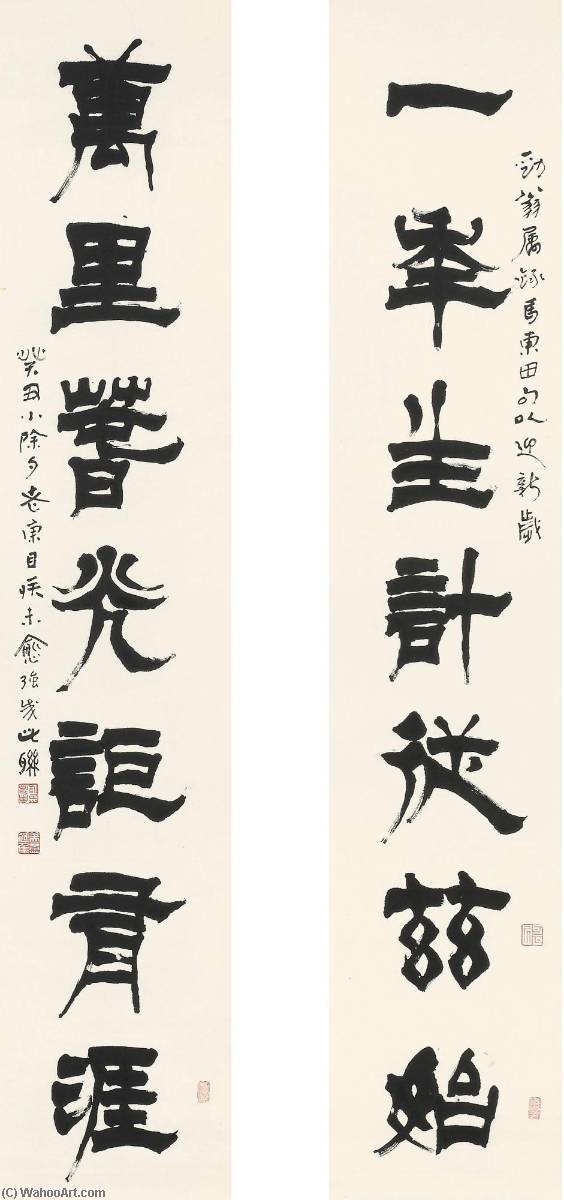 一年生計從茲始
勁翁屬錄馬東田句以迎新歲
萬里春光詎有涯
癸丑小除夕老康目疾未愈強成此聯
(C) WahooArt.com